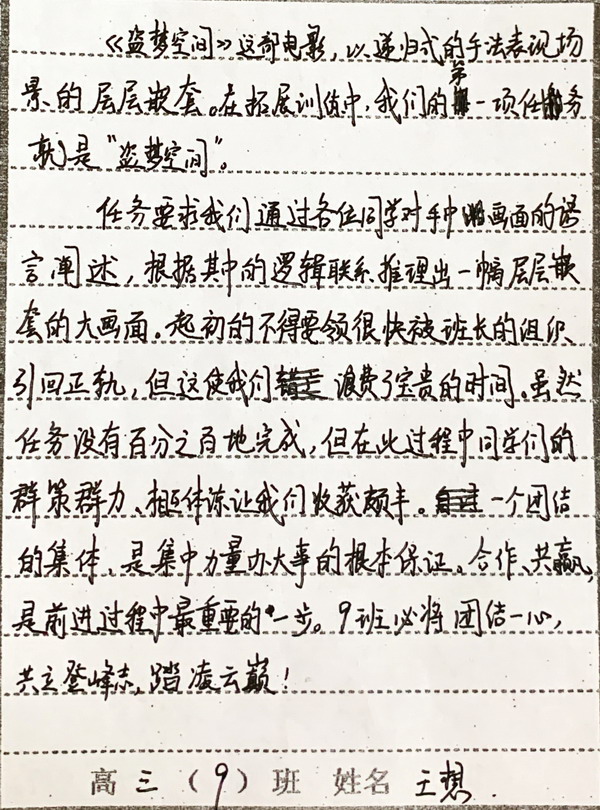 《盗梦空间》这部电影，以递归式的手法表现场
景的层层嵌套。在拓展训练中，我们的第一项任务
就是“盗梦空间”。
任务要求我们通过各位同学对手中画面的语
言阐述，根据其中的逻辑联系推理出一幅层层嵌
套的大画面。起初的不得要领很快被班长的组织
引回正轨，但这使我们浪费了宝贵的时间。虽然
任务没有百分之百地完成，但在此过程中同学们的
群策群力、相互体谅让我们收获颇丰。一个团结
的集体，是集中力量办大事的根本保证。合作、共赢，
是前进过程中最重要的一步。9班必将团结一心，
共立登峰志，踏凌云巅！
高三（9）班 姓名 王想